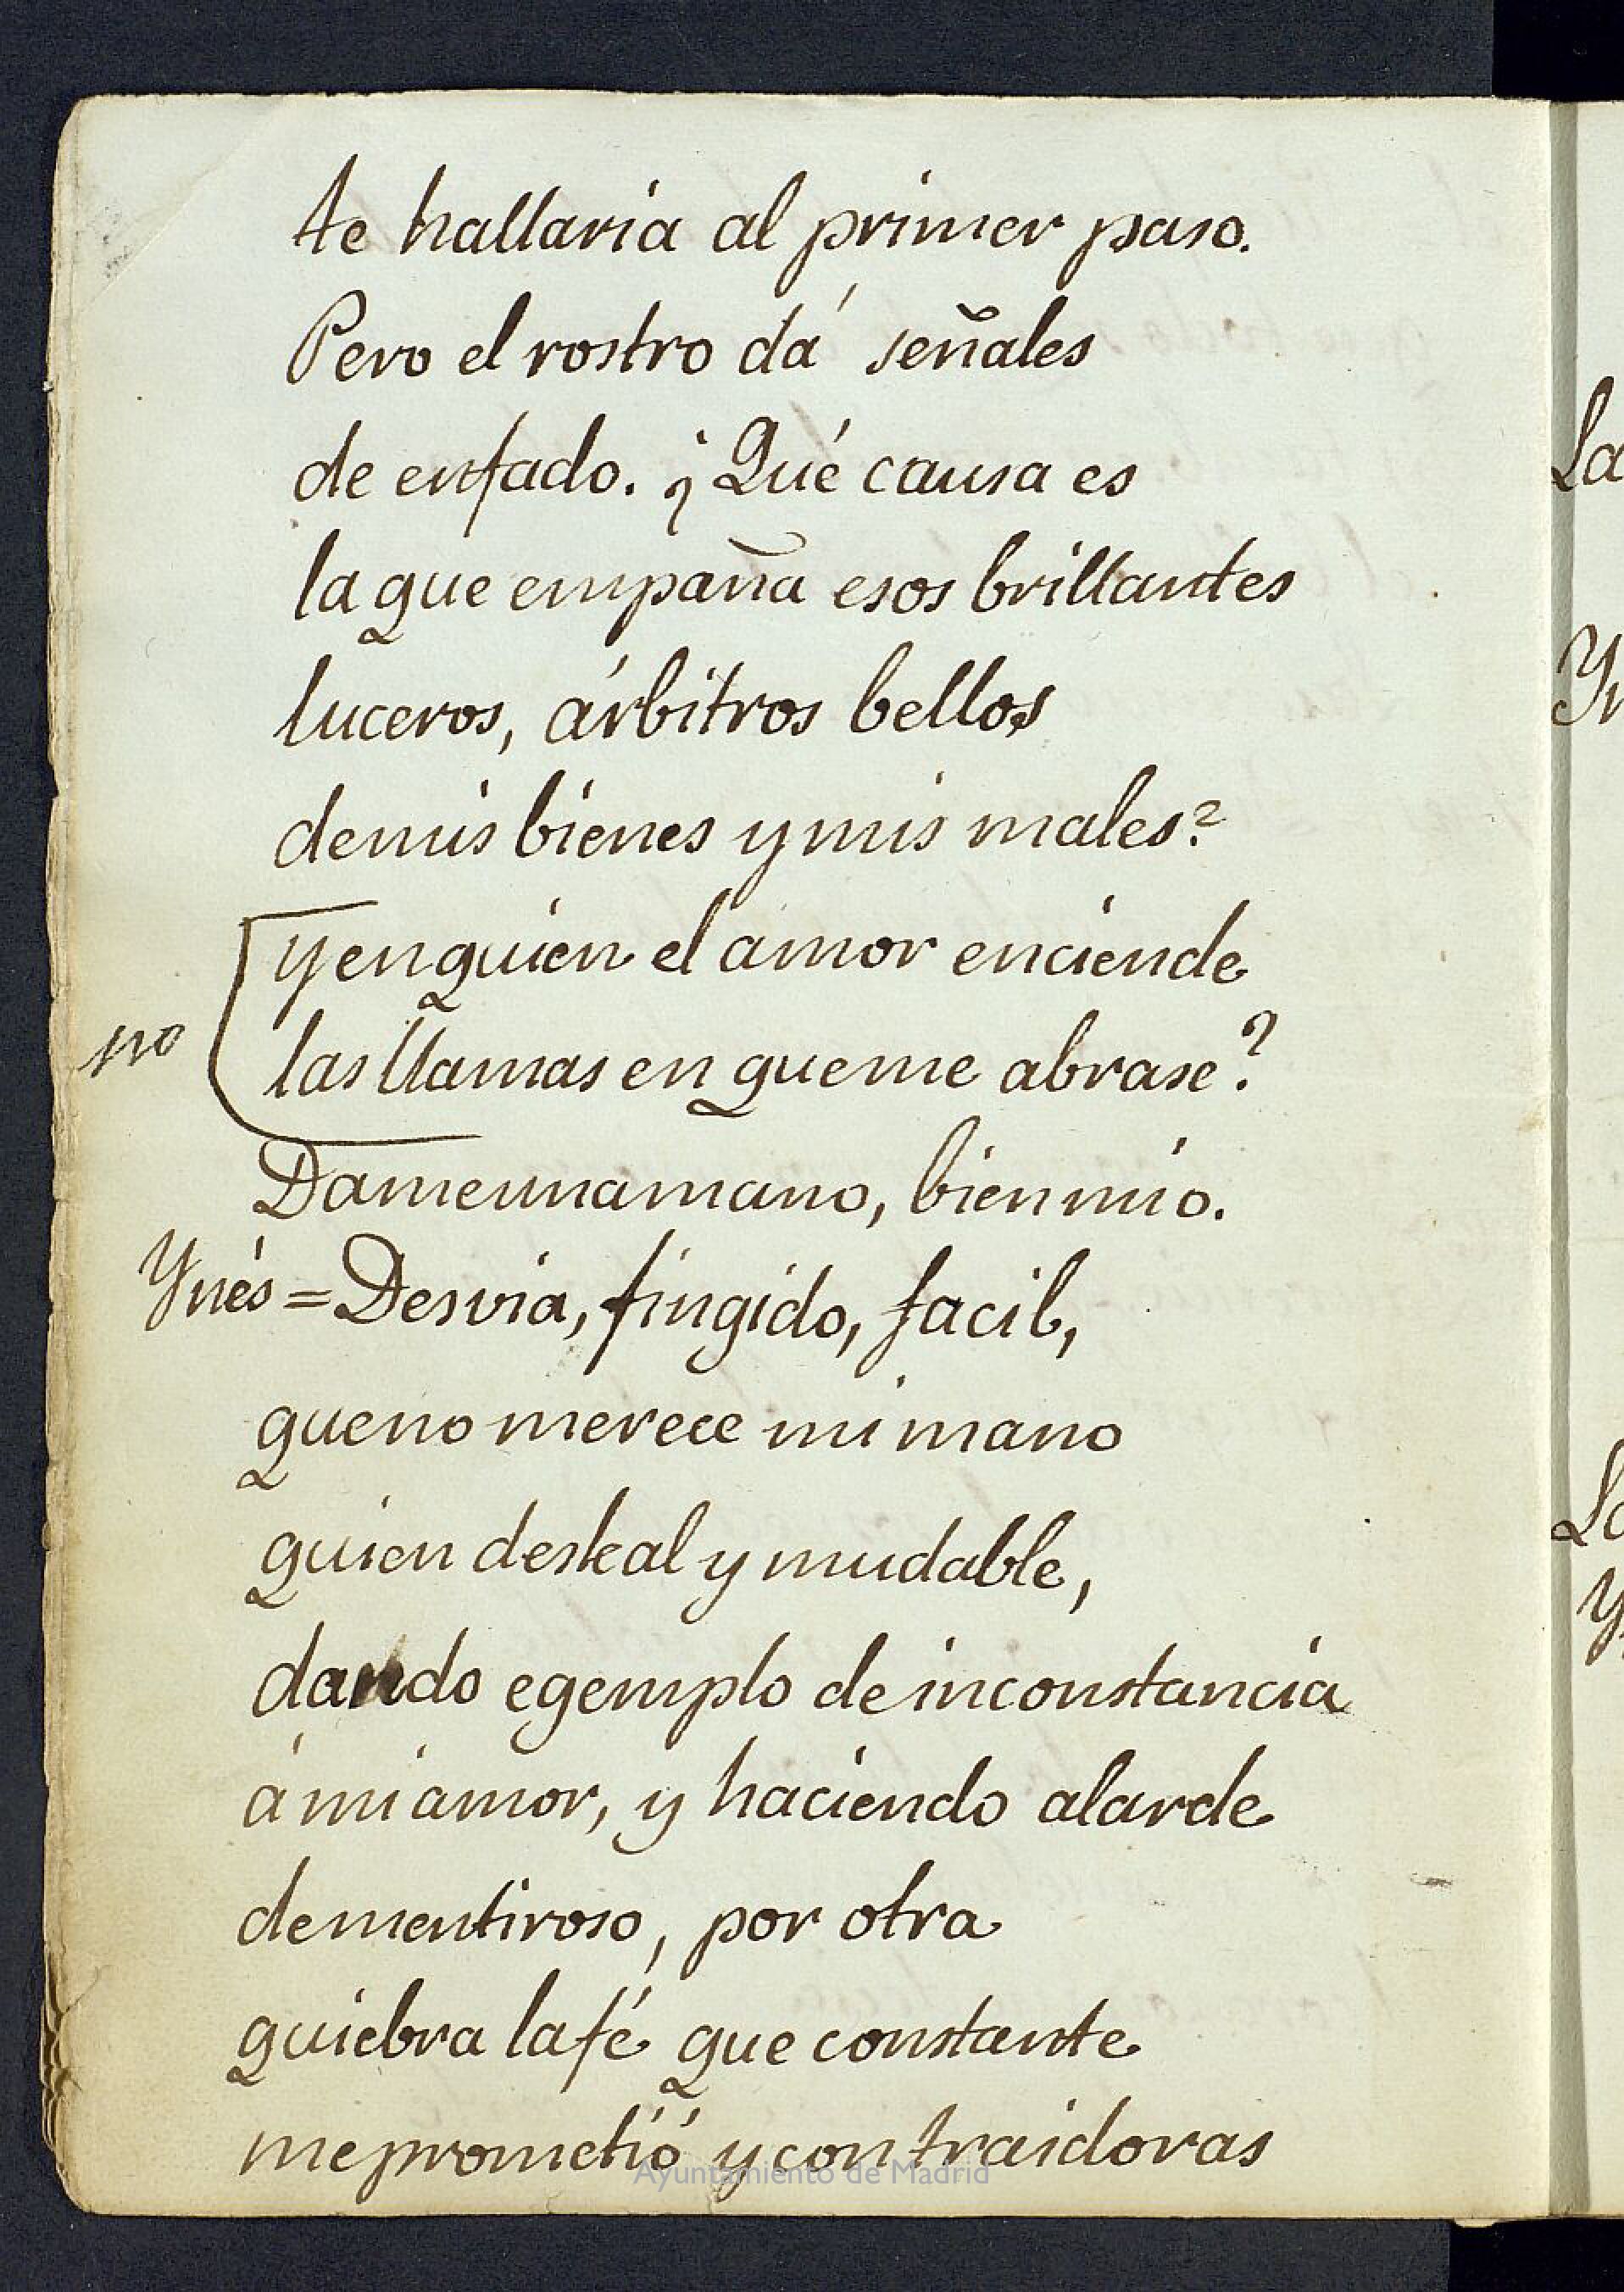 te hallaria al primer paso.
Pero el rostro dá señales
de enfado. ¿Qué causa es
la que empaña esos brillantes
luceros, árbitros bellos
de mis bienes y mis males?
y en quien el amor enciende
no
las llamas en que me abrase?
Dame una mano, bien mio.
Ynés = Desvia, fingido, facil,
que no merece mi mano
quien desleal y mudable,
dando egemplo de inconstancia
á mi amor, y haciendo alarde
de mentiroso, por otra
quiebra la fé que constante
me prometió y con traidoras
Ayuntamiento de Madrid
La
Yn
Y